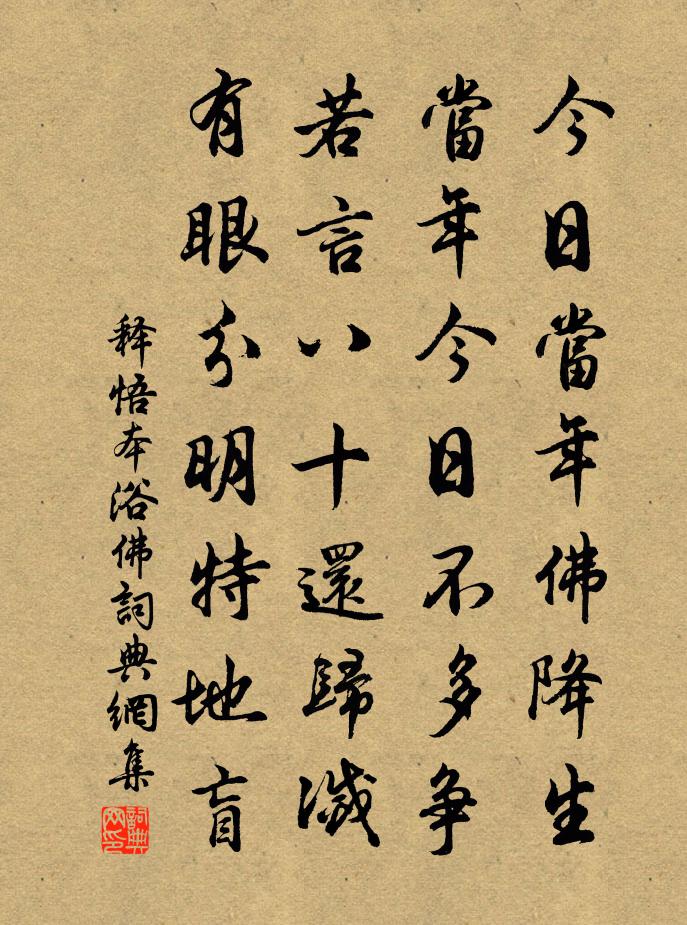 今日當年佛降生
當年今日不多爭
若言八十還歸滅
有眼分明特地盲
释悟本浴佛詞典網集
詞典网印